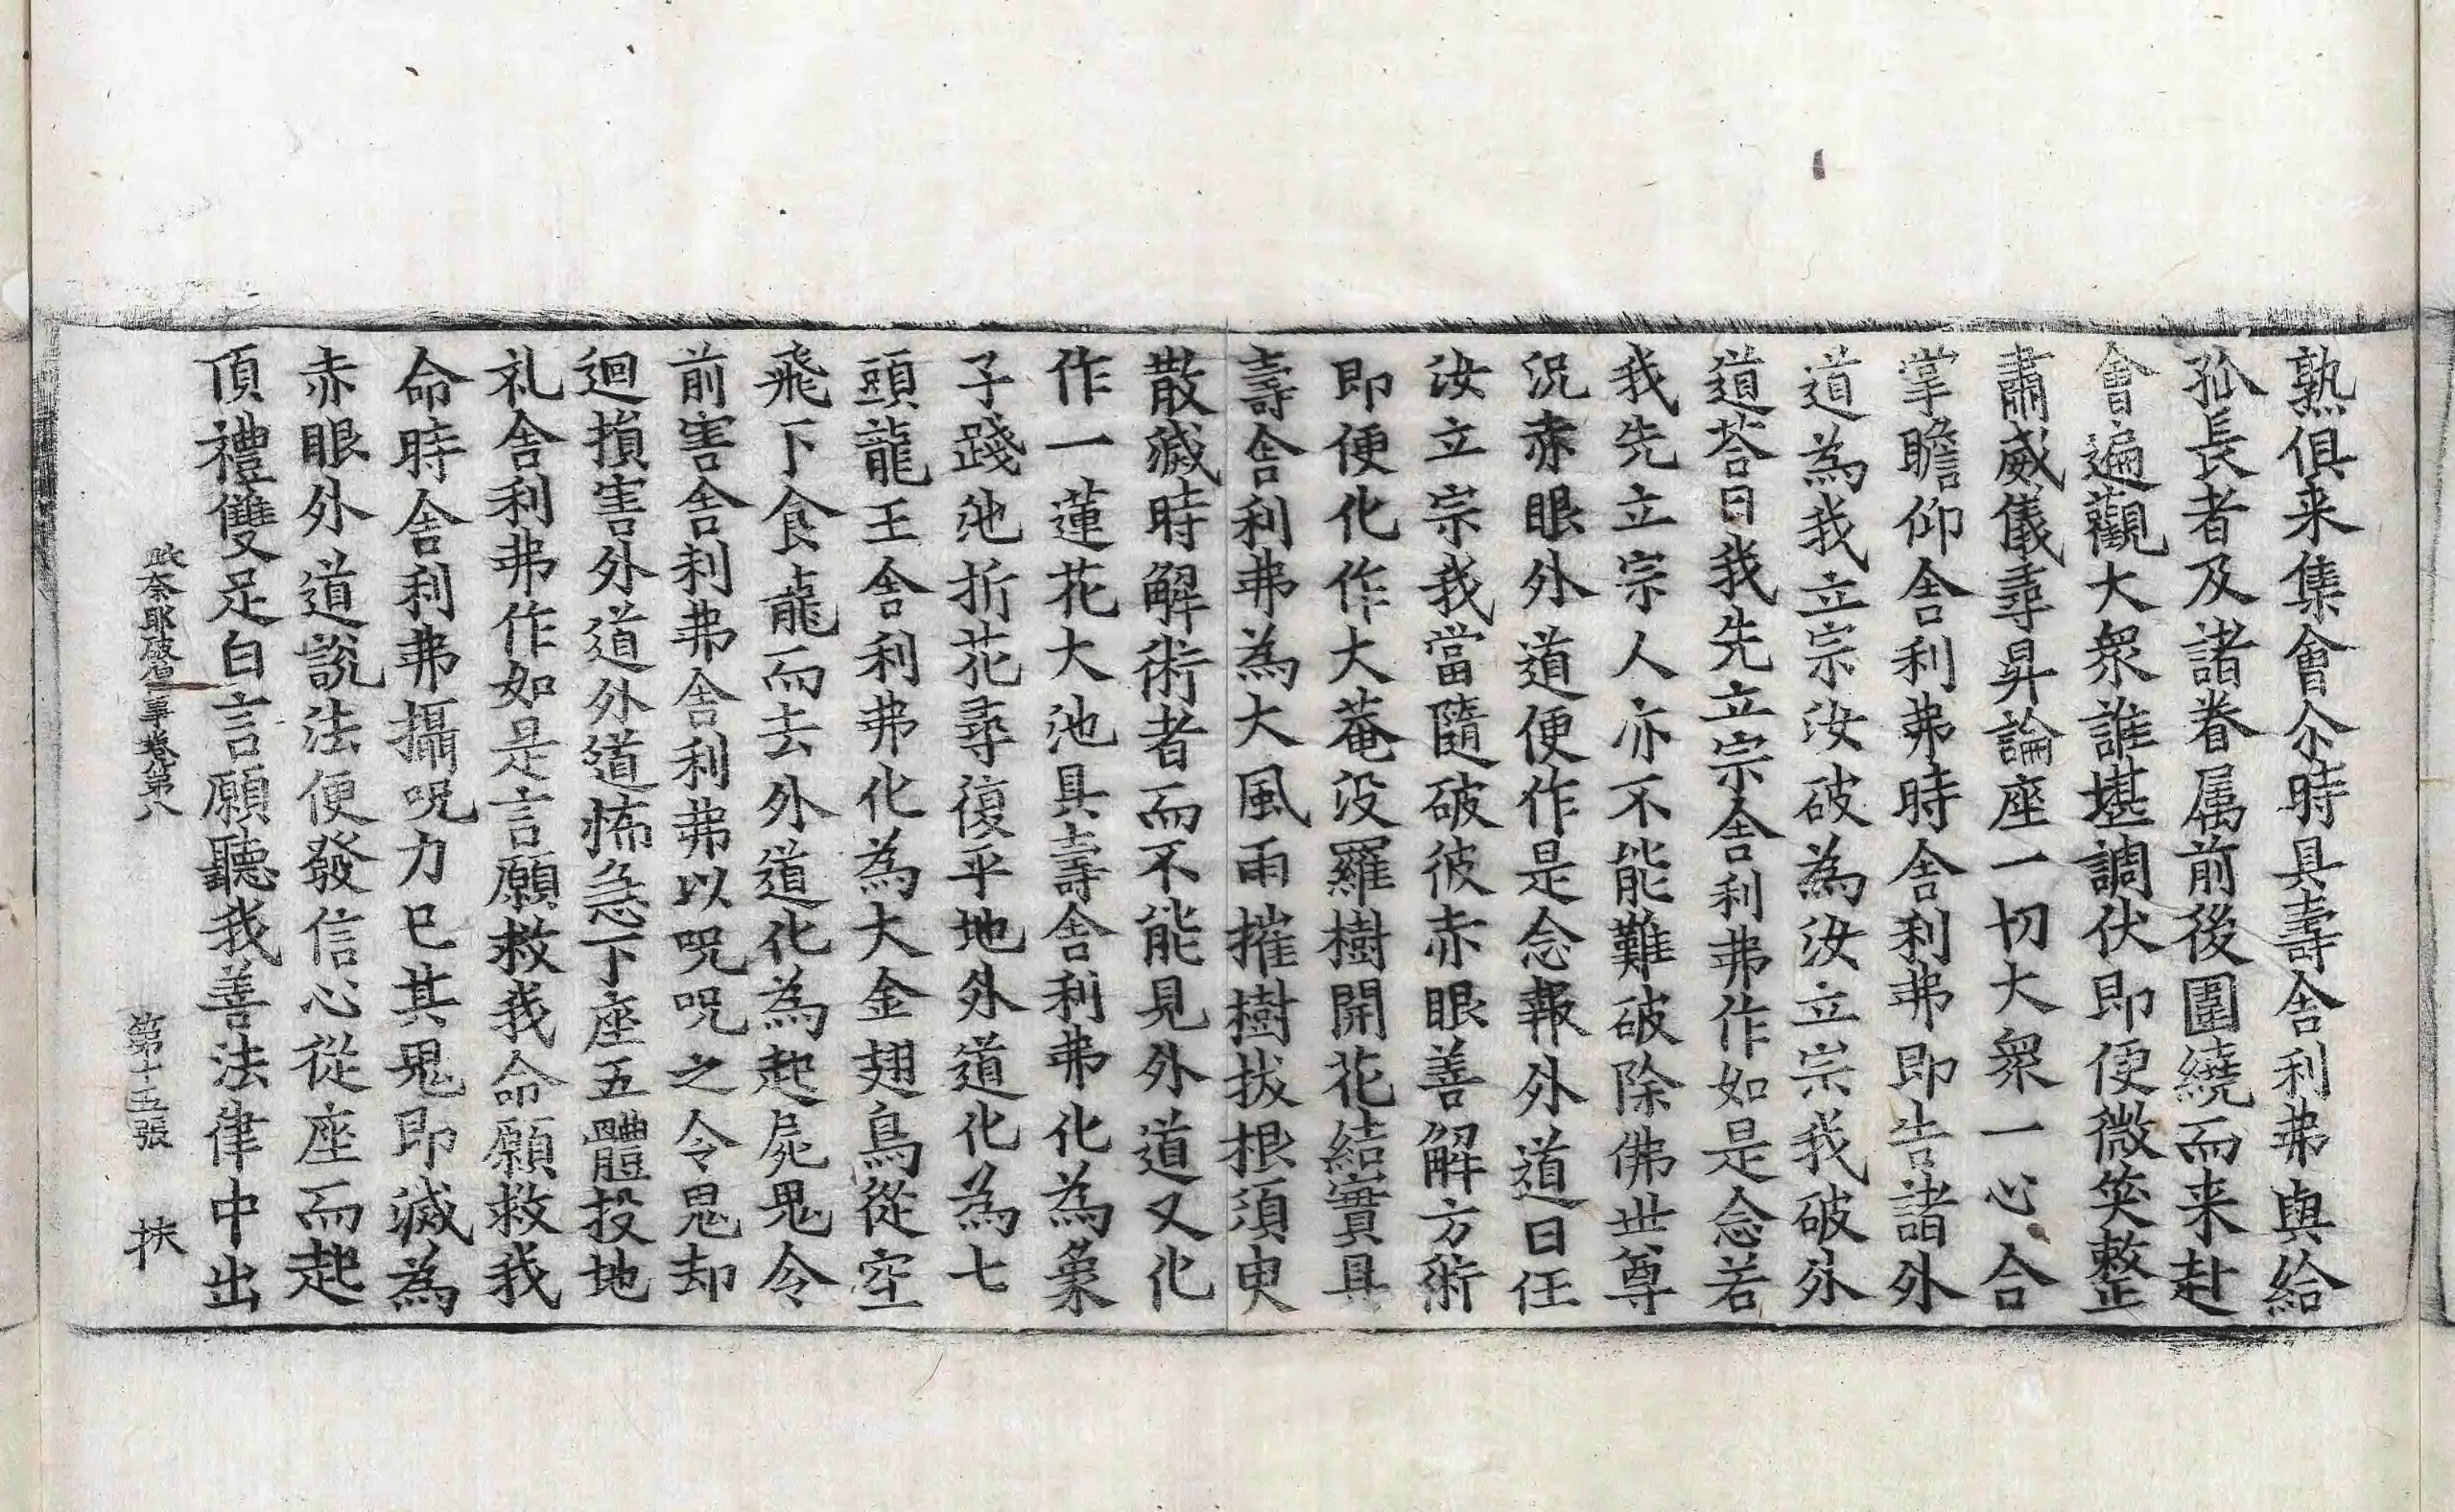 熟俱来集會尒時具壽舎利弗與給
孤長者及諸眷属前後圍繞而来赴
會遍觀大衆誰堪調伏即便微笑整
肅威儀尋昇論座一切大衆一心合
掌瞻仰舎利弗時舎利弗即告諸外
道為我立宗汝破為汝立宗我破外
道荅曰我先立宗舎利弗作如是念若
我先立宗人亦不能難破除佛世尊
況赤眼外道便作是念報外道曰任
汝立宗我當隨破彼赤眼善解方術
即便化作大菴没羅樹開花結實具
壽舎利弗為大風雨摧樹拔根須臾
散滅時解術者而不能見外道又化
作一蓮花大池具壽舎利弗化為象
子踐池折花尋復平地外道化為七
頭龍王舎利弗化為大金翅鳥從空
飛下食龍而去外道化為起屍鬼令
前害舎利弗舎利弗以呪呪之令鬼却
迴損害外道外道怖急下座五體投地
礼舎利弗作如是言願救我命願救我
命時舎利弗攝呪力已其鬼即滅為
赤眼外道說法便發信心從座而起
頂禮雙足白言願聽我善法律中出
奈耶破僧事卷第八 第十五張 扶